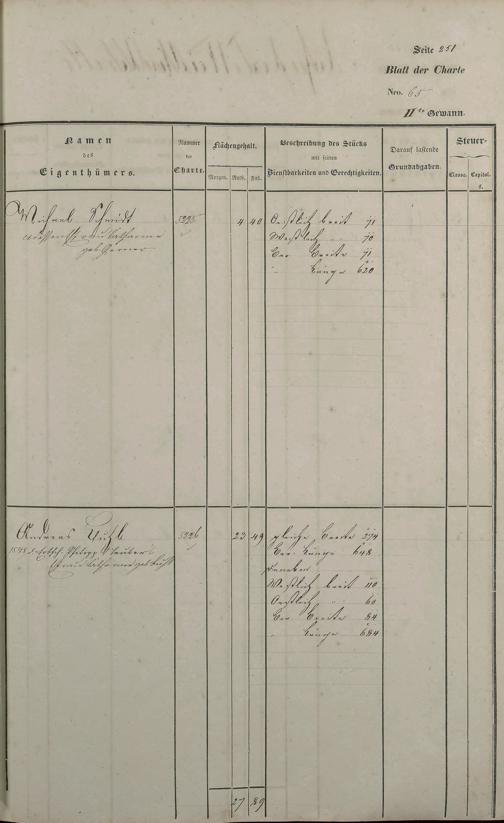 Seite 251
Blatt der Charte
Nro. 65
IIte Gewann.
Namen
des
Eigenthümers.
Nummer
der
Charte.
Flächengehalt.
Morgen. Ruth. Fuß.
Beschreibung des Stücks
mit seinen
Dienstbarkeiten und Gerechtigkeiten.
Darauf lastende
Grundabgaben.
Steuer-
Classe. Capital.
fl.
Michael Schmidt 5225 4 40 Oestlich breit 71
Westlich 70
Ber. Breite 71
Länge 620
Andreas 5226 23 49 gleiche Breite 374
Ber. Länge 648
Daneben
Westlich breit 110
Oestlich 60
Ber. Breite 84
Länge 684
27 89